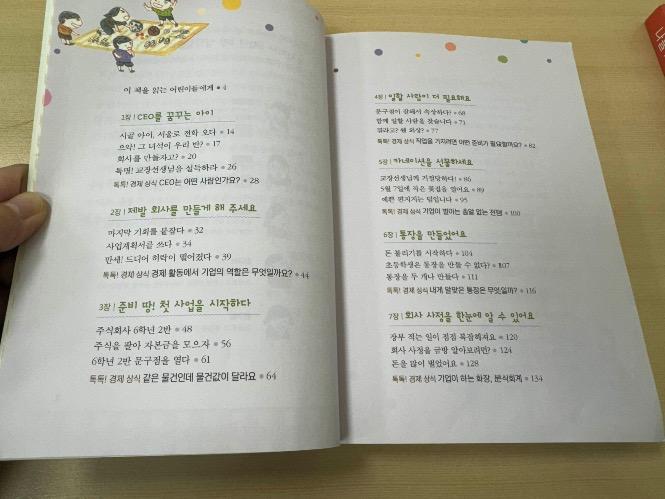 이 책을 읽는 어린이들에게 • 4
1장 | CEO를 꿈꾸는 아이
시골 아이, 서울로 전학 오다 • 14
으악! 그 녀석이 우리 반? • 17
회사를 만들자고? • 20
특명! 교장선생님을 설득하라 • 26
톡톡! 경제 상식 CEO는 어떤 사람인가요? • 28
2장 | 제발 회사를 만들게 해 주세요
마지막 기회를 붙잡다 • 32
사업계획서를 쓰다 • 34
만세! 드디어 허락이 떨어졌다 • 39
톡톡! 경제 상식 경제 활동에서 기업의 역할은 무엇일까요? • 44
3장 | 준비 땅! 첫 사업을 시작하다
주식회사 6학년 2반 • 48
주식을 팔아 자본금을 모으자 • 56
6학년 2반 문구점을 열다 • 61
톡톡! 경제 상식 같은 물건인데 물건값이 달라요 • 64
4장 | 일할 사람이 더 필요해요
문구점이 잘돼서 속상하다? • 68
함께 일할 사람을 찾습니다 • 71
뭐라고? 왜 화상? • 77
톡톡! 경제 상식 직업을 가지려면 어떤 준비가 필요할까요? • 82
5장 | 카네이션을 선물하세요
교장선생님께 거절당하다! • 86
5월 7일에 작은 꽃집을 열어요 • 89
예쁜 편지지는 덤입니다 • 95
톡톡! 경제 상식 기업이 벌이는 총알 없는 전쟁! • 100
6장 | 통장을 만들었어요
돈 불리기를 시작하다 • 104
초등학생은 통장을 만들 수 없다? • 107
통장을 두 개나 만들다 • 111
톡톡! 경제 상식 내게 알맞은 통장은 무엇일까? • 116
7장 | 회사 사정을 한눈에 알 수 있어요
장부 적는 일이 점점 복잡해져요 • 120
회사 사정을 금방 알아보려면? • 124
돈을 많이 벌었어요 • 128
톡톡! 경제 상식 기업이 하는 화장, 분식회계 • 134